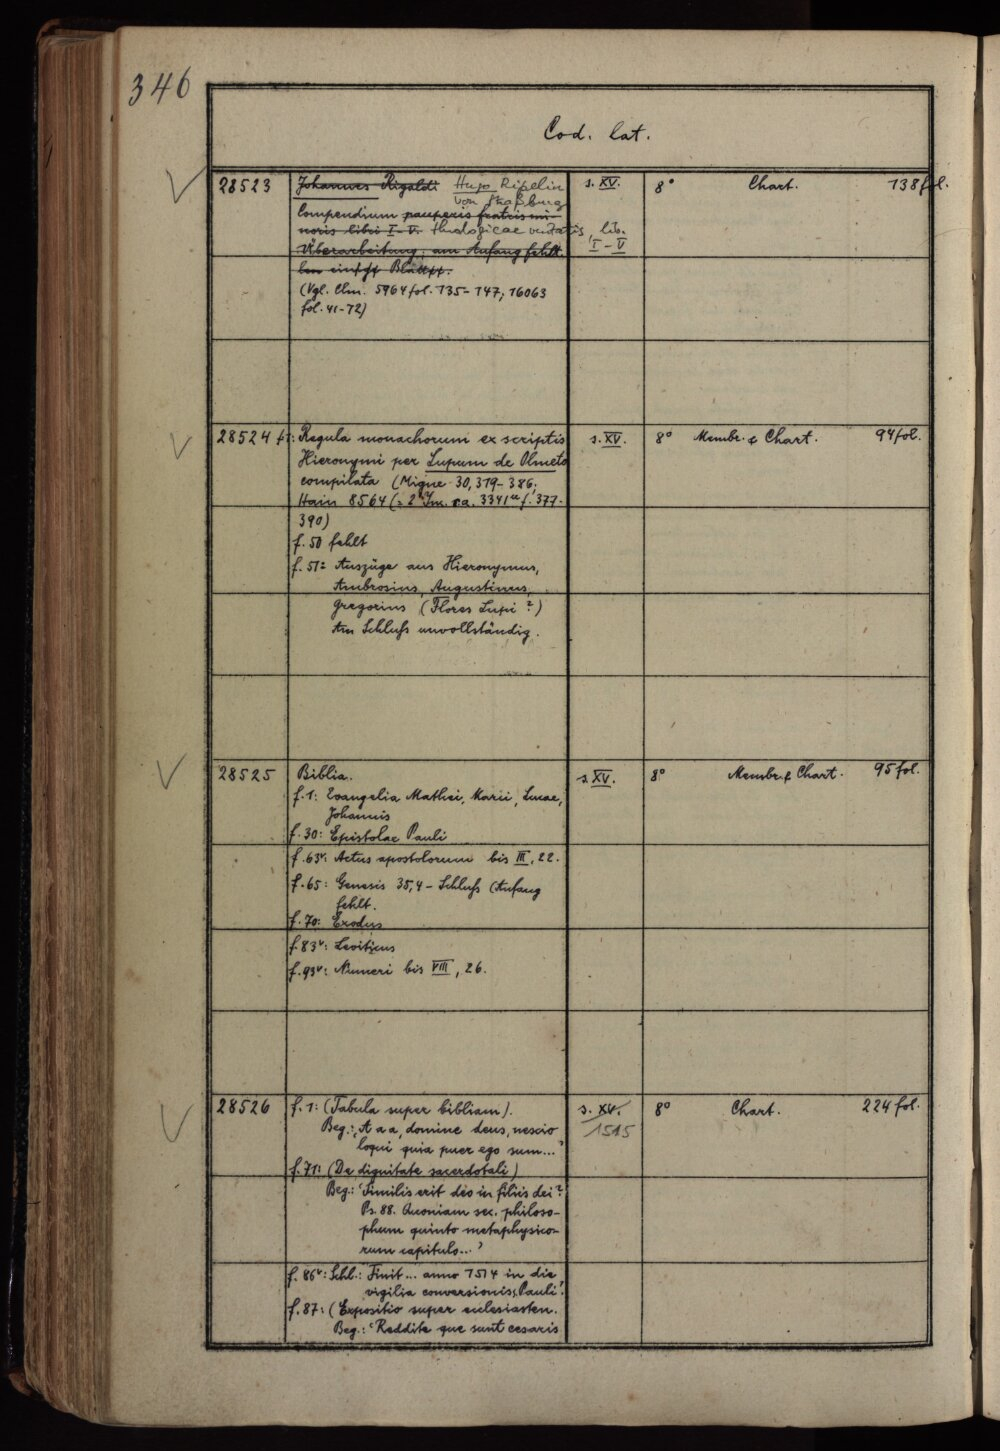 346
Cod. lat.
28523 Johannes Rigoldi Hugo Ripelin s. XV. 8° Chart. 138 fol.
von Straßburg
Compendium pauperis fratris mi-
noris libri I-V. theologicae veritatis, lib.
I-V
Überarbeitung; am Anfang fehl
len Blätt
(Vgl. Clm. 5964 fol. 135-147; 16063
fol. 41-72)
28524 f. 1: Regula monachorum ex scriptis s. XV. 8° Membr. & Chart. 94 fol.
Hieronymi per Lupum de Olmeto
compilata (Migne 30, 319-386;
Hain 8564 (= 2° Inc. s.a. 3341 f. 377-
390)
f. 50 fehlt
f. 51: Auszüge aus Hieronymus,
Ambrosius, Augustinus,
Gregorius (Flores Lupi?)
Am Schluß unvollständig.
28525 Biblia. s. XV. 8° Membr. & Chart. 95 fol.
f. 1: Evangelia Mathei, Marci, Lucae,
Johannis
f. 30: Epistolae Pauli
f. 63v: Actus apostolorum bis III, 22.
f. 65: Genesis 35,4 - Schluß (Anfang
fehlt.
f. 70: Exodus
f. 83v: Leviticus
f. 93v: Numeri bis VIII, 26.
28526 f. 1: (Tabula super bibliam). s. XV. 8° Chart. 224 fol.
1515
Beg.: 'A a a, domine deus, nescio
loqui quia puer ego sum...'
f. 71: (De dignitate sacerdotali)
Beg.: 'Similis erit deo in filiis dei?
Ps. 88. Quoniam sec. philoso-
phum quinto metaphysico-
rum capitulo...'
f. 86v: Schl.: 'Finit... anno 1514 in die
vigilia conversionis s. Pauli'.
f. 87: (Expositio super ecclesiasten.
Beg.: 'Reddite que sunt cesaris